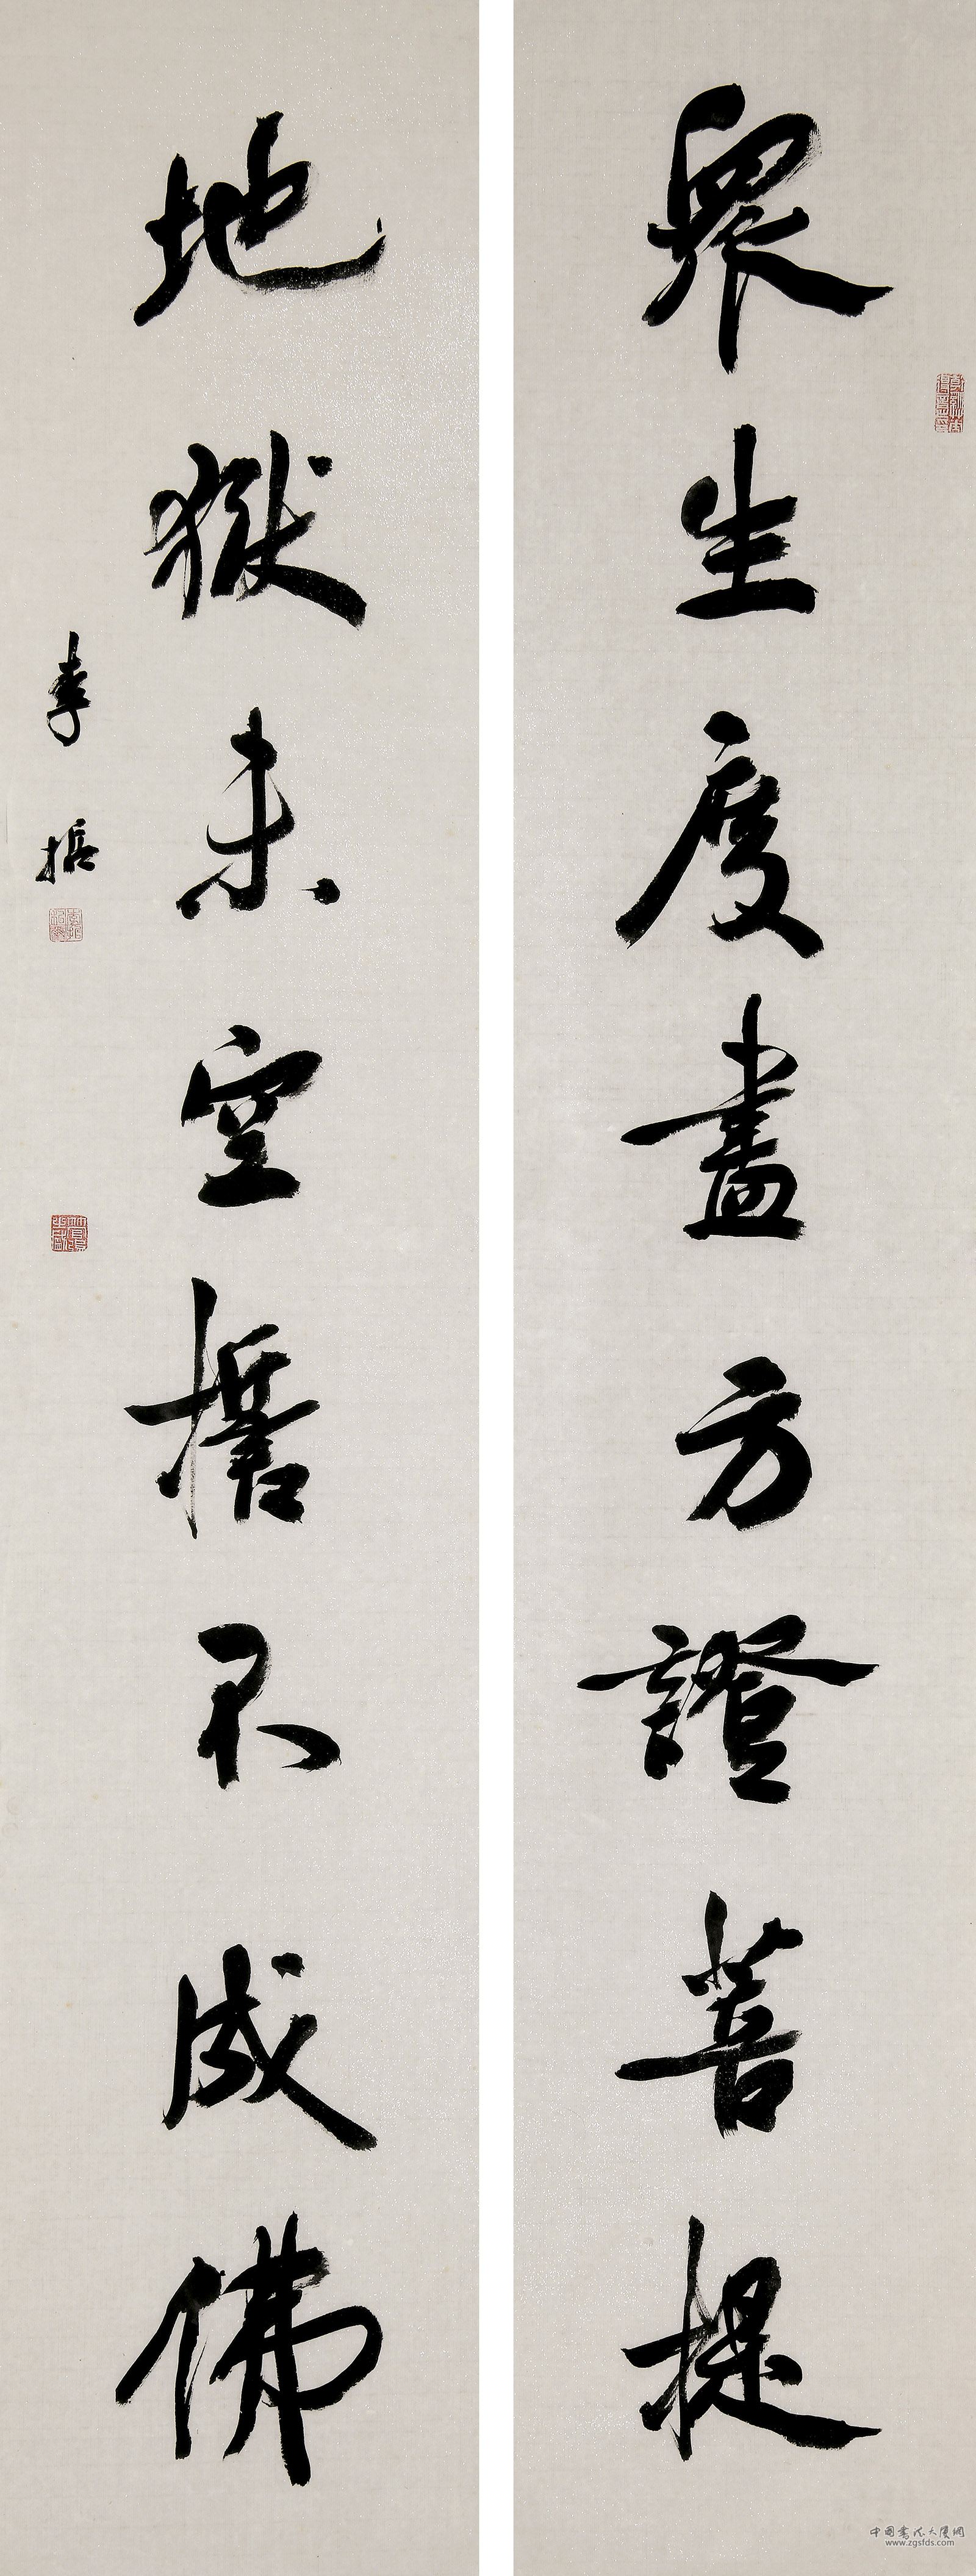 眾生度盡方證菩提
地獄未空誓不成佛
李振
中国书法大厦网
www.zgsfds.com